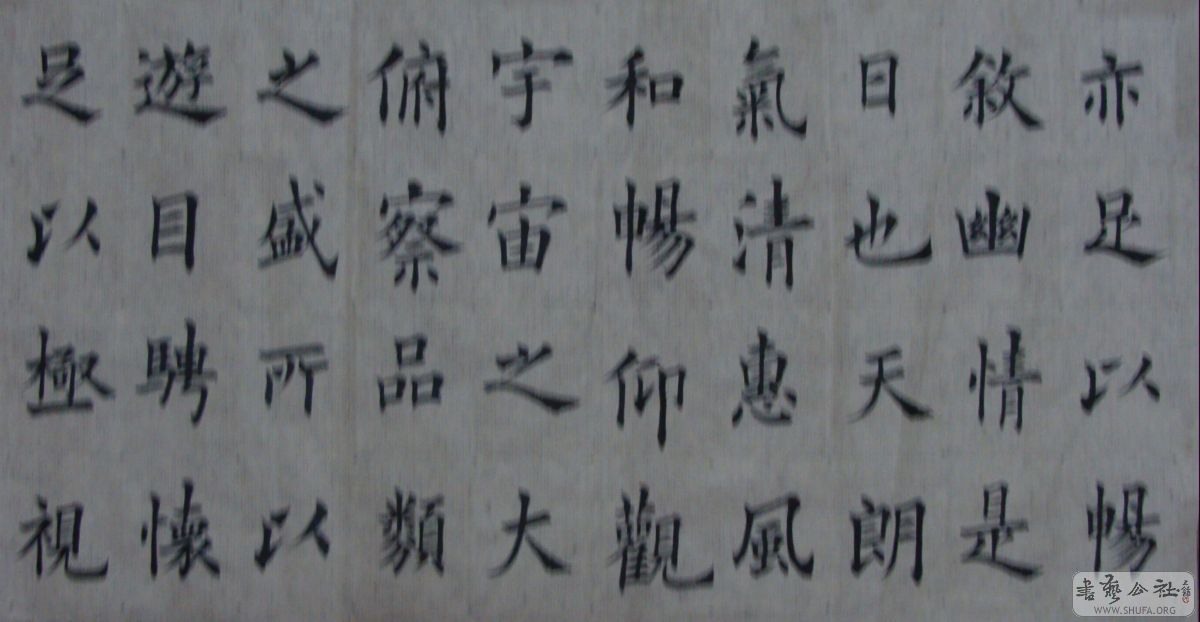 亦足以暢
敘幽情是
日也天朗
氣清惠風
和暢仰觀
宇宙之大
俯察品類
之盛所以
遊目騁懷
足以極視
書藝公社
WWW.SHUFA.ORG